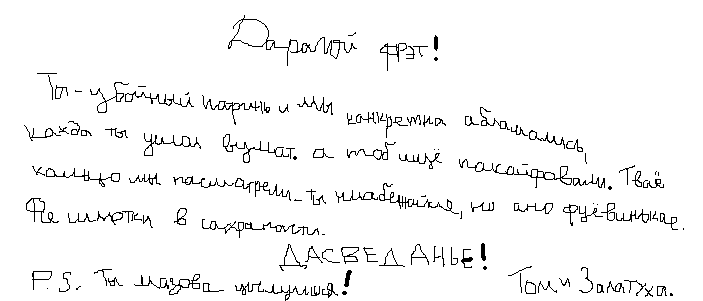 Дарагой фрэт!
Ты - убойный паринь и мы канкретна аблажались,
када ты ушол вушат. а то б ищё пакайфавали. Тваё
кальцо мы пасматрели - ты ниабежайся, но ано фуёвинькае.
Фсе шмотки в сахраности.
ДАСВЕДАНЬЕ!
P.S. Ты мазова целуишся! Том и Залатуха.